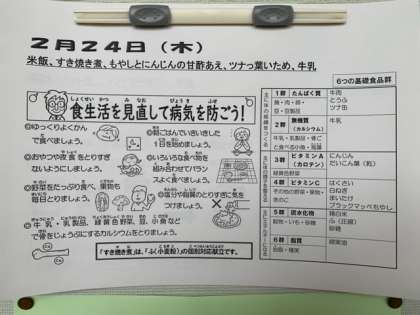 2月24日（木）
米飯、すき焼き煮、もやしとにんじんの甘酢あえ、ツナっ葉いため、牛乳
食生活を見直して病気を防ごう！
しょくせいかつ みなお びょうき ふせ
◎ゆっくりよくかん
で食べましょう。
◎朝ごはんでいきいきした
1日を始めましょう。
◎おやつや夜食をとりすぎ
ないようにしましょう。
◎いろいろな食べ物を
組み合わせてバラン
スよく食べましょう。
◎野菜をたっぷり食べ、果物も
毎日とりましょう。
◎塩分や脂質のとりすぎに気を
つけましょう。
◎牛乳・乳製品、緑黄野菜、豆、小魚など
で骨をじょうぶにするカルシウムをとりましょう。
Ca
Ca
「すき焼き煮」は、「ふ（小麦粉）」の個別対応献立です。
6つの基礎食品群
1群 たんぱく質
魚・肉・卵・
豆・豆製品
牛肉
とうふ
ツナ缶
2群 無機質
（カルシウム）
牛乳・乳製品、骨ご
と食べる小魚、海藻
牛乳
3群 ビタミンA
（カロテン）
緑黄色野菜
にんじん
だいこん葉（粒）
4群 ビタミンC
その他の野菜・果物・
きのこ
はくさい
白ねぎ
まいたけ
ブラックマッペもやし
5群 炭水化物
穀物・いも・砂糖
精白米
ふ（圧扁）
砂糖
6群 脂質
油脂・種実
綿実油